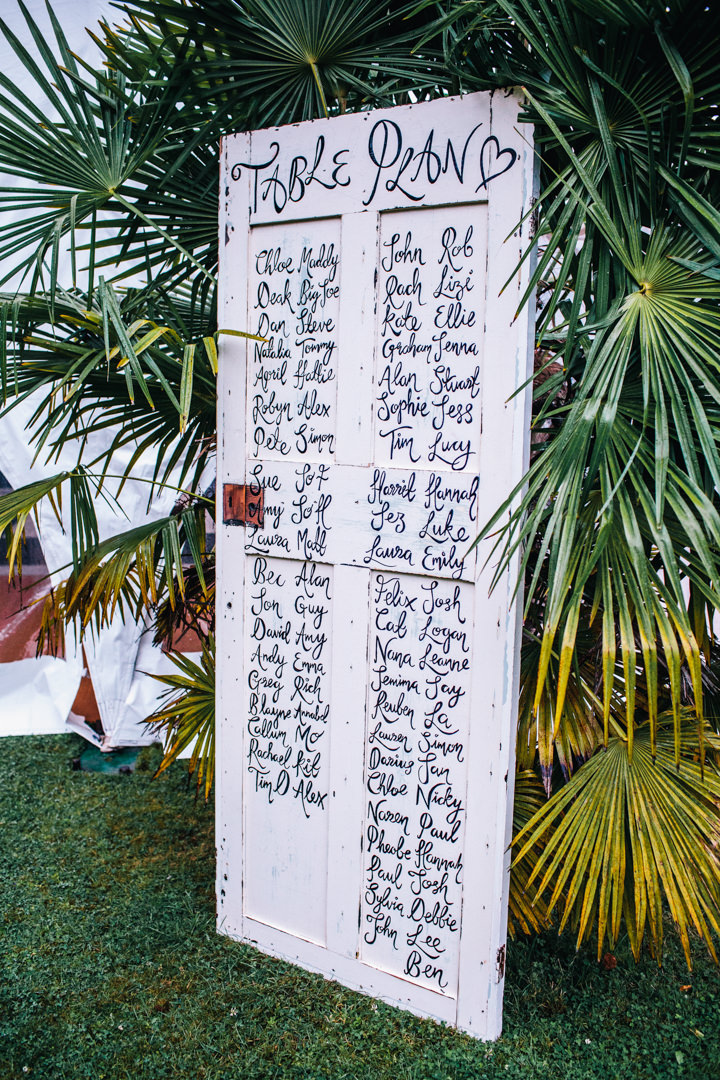 Table Plan
Chloe Maddy
Deak Big Joe
Dan Steve
Natalia Tommy
April Hattie
Robyn Alex
Pete Simon
Sue Jo
Amy Joff
Laura Matt
Bec Alan
Jon Guy
David Amy
Andy Emma
Greg Rich
Blayne Annabel
Callum Mo
Rachael Kit
Tim D Alex
John Rob
Rach Lizi
Kate Ellie
Graham Jenna
Alan Stuart
Sophie Jess
Tim Lucy
Harriet Hannah
Jez Luke
Laura Emily
Felix Josh
Cat Logan
Nana Leanne
Jemima Jay
Reuben La
Lauren Simon
Darius Ian
Chloe Nicky
Naren Paul
Phoebe Hannah
Paul Josh
Sylvia Debbie
John Lee
Ben